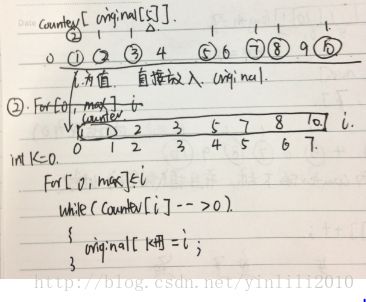 counter[original[5]].
② 1 1 1 1 1 1
0 ① ② ③ 4 ⑤ 6 ⑦ ⑧ 9 ⑩
i为值. 直接放入 original.
② For[0, max] i
counter
1 1 2 3 5 7 8 10 i.
0 1 2 3 4 5 6 7.
int K=0.
For[0, max] i
while(counter[i]-->0).
{
original[K++]=i;
}
http://blog.csdn.net/yinlili2010